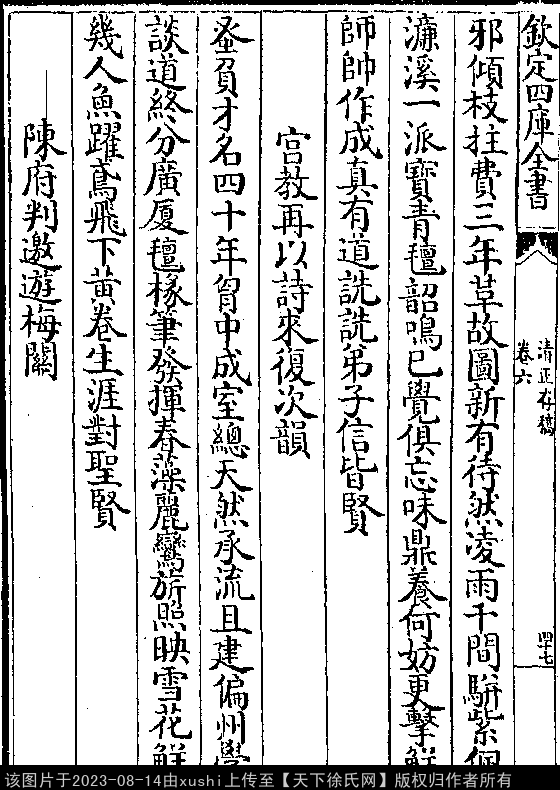 欽定四庫全書
清正存稿
卷六
四十七
邪傾枝拄費三年革故圖新有待然凌雨千間駢紫
濂溪一派寶青氊韶鳴已覺俱忘味鼎養何妨更擊鮮
師帥作成真有道詵詵弟子信皆賢
宫教再以詩來復次韻
蚤負才名四十年胷中成室總天然承流且建偏州學
談道終分廣厦氊椽筆發揮春藻麗鸞旂照映雪花鮮
幾人魚躍鳶飛下黄卷生涯對聖賢
陳府判邀遊梅關
该图片于2023-08-14由xushi上传至【天下徐氏网】版权归作者所有